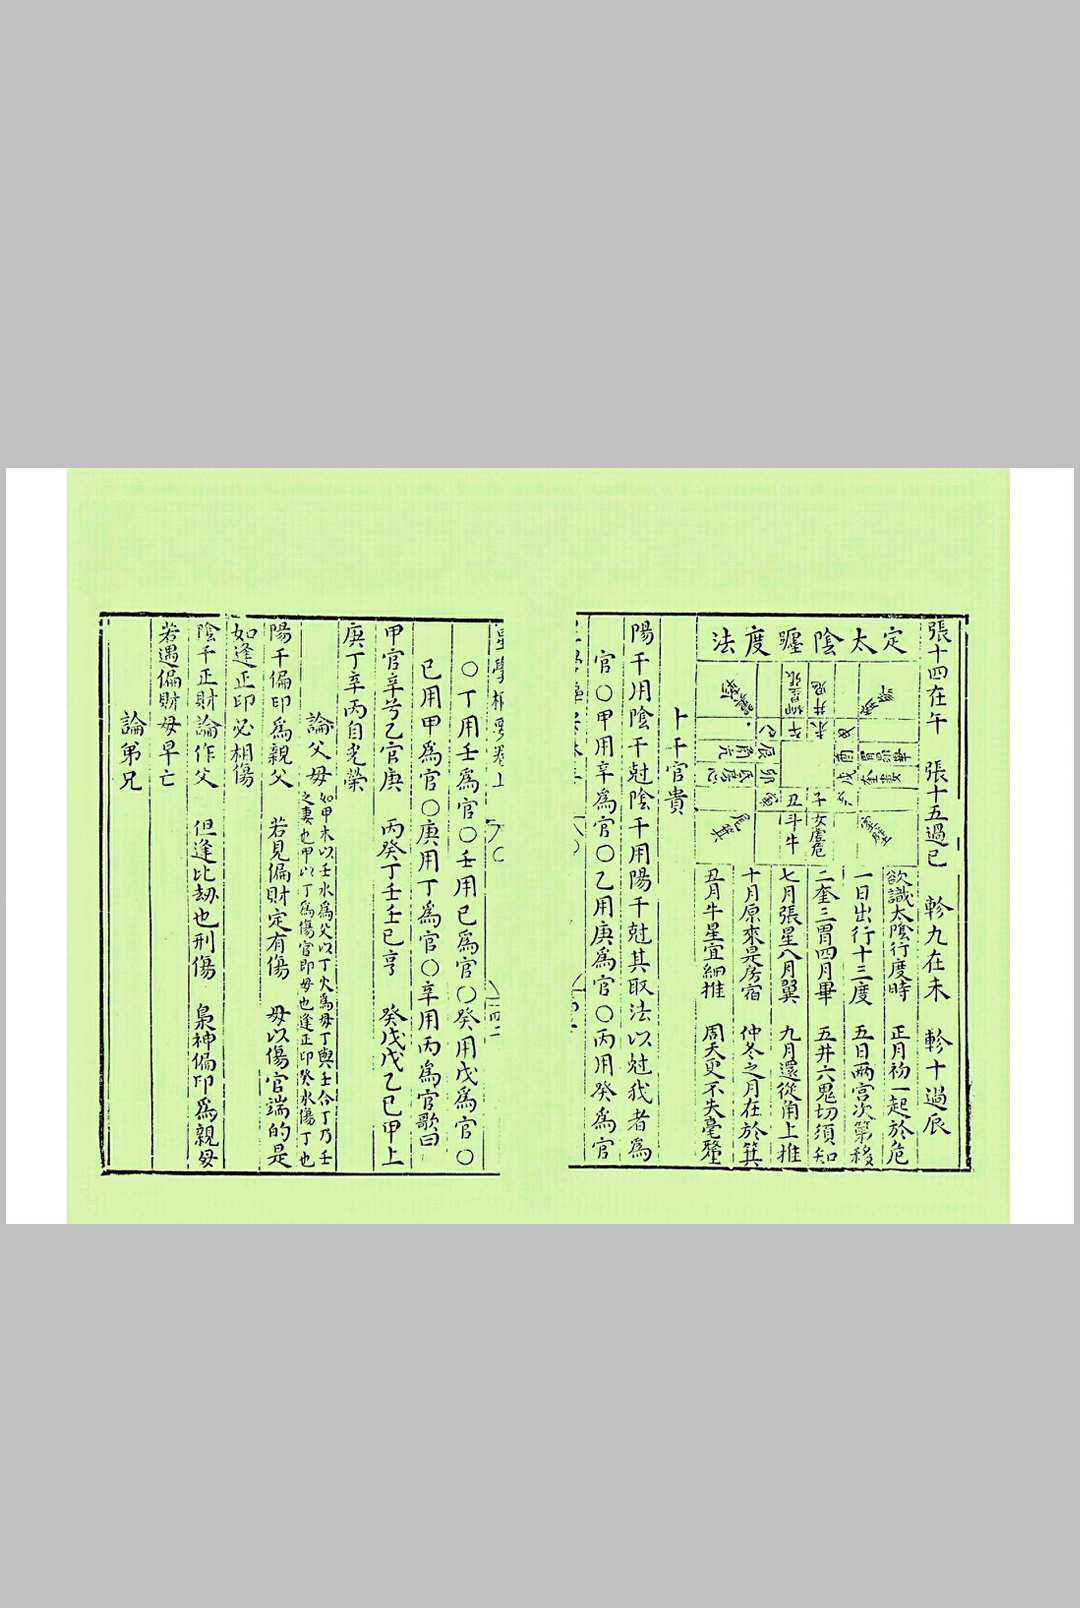 張十四在午　張十五過巳　軫九在未　軫十過辰
定太陰躔度法
欲識太陰行度時　正月初一起於危
一日出行十三度　五日兩宮次第移
二奎三胃四月畢　五井六鬼切須知
七月張星八月翼　九月還從角上推
十月原來是房宿　仲冬之月在於箕
丑月牛星宜細推　周天更不失毫釐
井鬼
柳星張
未
午
巳
酉
戌
辰
卯
角亢
氐房心
昴胃畢
奎婁
丑
子
斗牛
女虛危
尾箕
室壁
卜干官貴
陽干用陰干尅陰干用陽干尅其取法以尅我者為
官〇甲用辛為官〇乙用庚為官〇丙用癸為官
星學樞要卷上
〇丁用壬為官〇壬用已為官〇癸用戊為官〇
已用甲為官〇庚用丁為官〇辛用丙為官歌曰
甲官辛兮乙官庚　丙癸丁壬壬已亨　癸戊戊乙已甲上
庚丁辛丙自光榮
論父母如甲木以壬水為父以丁火為母丁與壬合丁乃壬
之妻也甲以丁為傷官即母也逢正印癸水傷丁也
陽干偏印為親父　若見偏財定有傷　母以傷官端的是
如逢正印必相傷
陰干正財論作父　但逢比劫也刑傷　梟神偏印為親母
若遇偏財母早亡
論弟兄